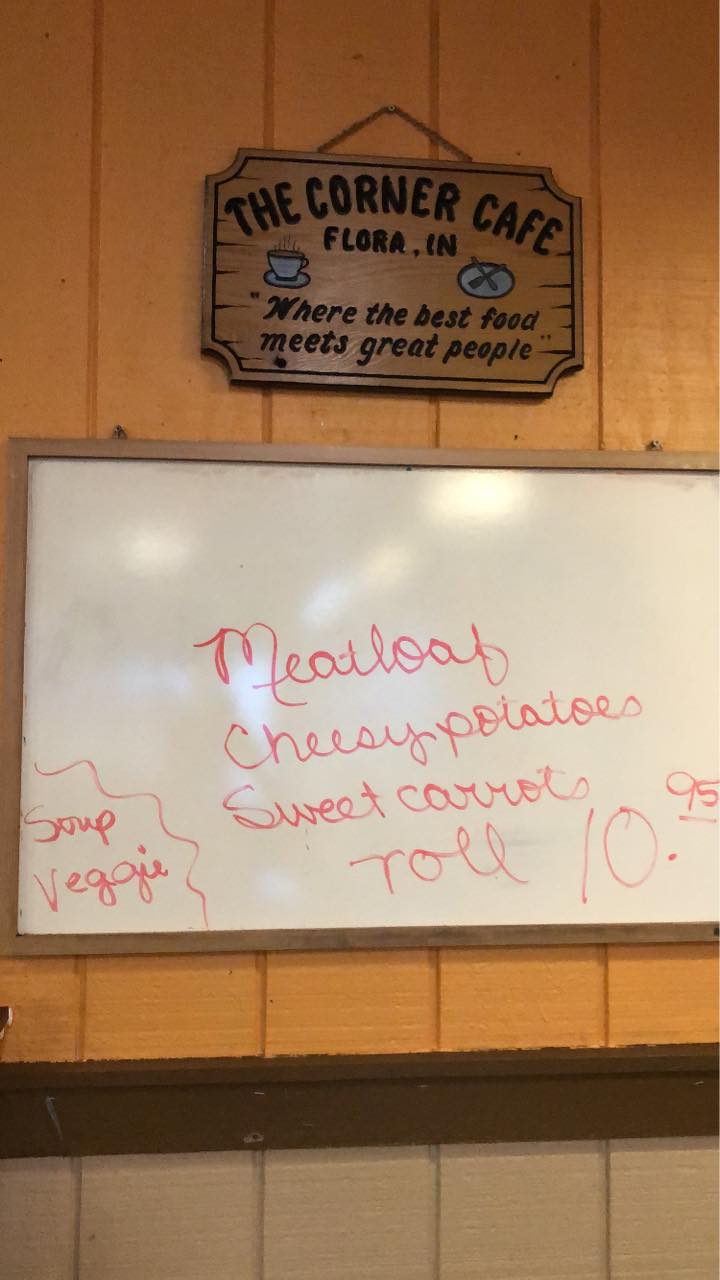 THE CORNER CAFE
FLORA, IN
"Where the best food
meets great people"
Meatloaf
Cheesy potatoes
Sweet carrots
roll 10.95
Soup
Veggie